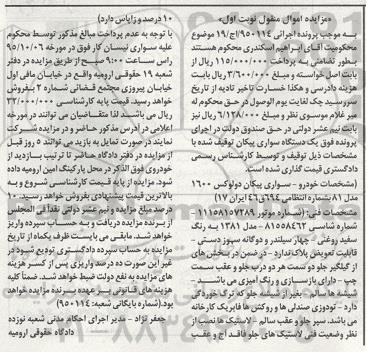 «مزایده اموال منقول نوبت اول»
به موجب پرونده اجرائی ۹۵۰۱۱۴/اج/۱۹ موضوع
محکومیت آقای ابراهیم اسکندری محکوم هستند
بطور تضامنی به پرداخت ۱۱۵/۰۰۰/۰۰۰ ریال از
بابت اصل خواسته و مبلغ ۳/۶۰۰/۰۰۰ ریال بابت
هزینه دادرسی و هکذا خسارت تاخیر تادیه از تاریخ
سررسید چک لغایت یوم الوصول در حق محکوم له
میر غلام موسوی نظر و مبلغ ۶/۱۲۸/۰۰۰ ریال نیز
بابت نیم عشر دولتی در حق صندوق دولت در اجرای
پرونده فوق یک دستگاه سواری پیکان توقیف شده با
مشخصات ذیل توقیف و توسط کارشناس رسمی
دادگستری قیمت گذاری شده است
(مشخصات خودرو - سواری پیکان دولوکس ۱۶۰۰
مدل ۸۱ بشماره انتظامی ۶۹۴ق۴۶ ایران ۱۷)
مشخصات فنی: (شماره موتور ۱۱۱۵۸۱۵۷۳۸۹
شماره شاسی ۸۱۵۵۸۴۶۲ - مدل ۱۳۸۱ به رنگ
سفید روغنی - چهار سیلندر و دوگانه سوز دستی -
قابلیت تعویض پلاک ندارد - در ضمن در بخش های
از گلگیر جلو دو سمت هر دو درب جلو و عقب سمت
چپ - دارای بازسازی و رنگ آمیزی می باشد -
شیشه ها سالم - بغیر از شیشه جلو که ترک خوردگی
دارد - تودوزی صندلی ها و روکش ها فابریک کارخانه
می باشد. سپر جلو و عقب سالم - لاستیک ها نصب از
نظر وضعیت فنی لاستیک های جلو فاقد آج و عقب
۱۰ درصد و زاپاس دارد)
با توجه به عدم پرداخت مبالغ مذکور توسط محکوم
علیه سواری پیکان کار فوق در مورخه ۹۵/۱۰/۰۶
راس ساعت ۹:۰۰ صبح از طریق مزایده در دفتر
شعبه ۱۹ حقوقی ارومیه واقع در خیابان مافی اول
خیابان پیروزی مجتمع قضائی شماره ۲ بفروش
خواهد رسید. قیمت پایه کارشناسی ۳۳/۰۰۰/۰۰۰
ریال می باشد لذا متقاضیان می توانند در مورخه
اعلامی در آدرس مذکور حاضر و در مزایده شرکت
نمایند در صورت تمایل به بازید می توانند ۵ روز قبل
از مزایده در دفتر دادگاه حاضر تا ترتیب بازدید از
خودروی فوق الذکر در محل پارکینگ امین ارومیه داده
شود. مزایده از پایه قیمت کارشناسی شروع و به
بالاترین قیمت پیشنهادی بفروش خواهد رسید. ۱۰
درصد مبلغ مزایده و نیم عشر دولتی نقداً فی المجلس
از برنده مزایده دریافت و به حساب سپرده واریز
خواهد شد. مابقی می بایست ظرف یکماه از تاریخ
مزایده به حساب سپرده دادگستری تودیع شود در
غیر این صورت ده درصد واریزی پس از کسر هزینه
های مزایده به نفع دولت ضبط خواهد شد. ضمناً کلیه
هزینه های قانونی بر عهده برنده مزایده خواهد
بود. (شماره بایگانی شعبه: ۹۵۰۱۱۴)
جعفر نژاد - مدیر اجرای احکام مدنی شعبه نوزده
دادگاه حقوقی ارومیه